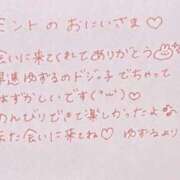 ミントのおにいさま♡
会いに来てくれてありがとう
早速ゆずるのドジッ子でちゃって
はずかしいです(^ω^)♡
のんびりできて楽しかったよ
また会いに来てね♡ ゆずるより